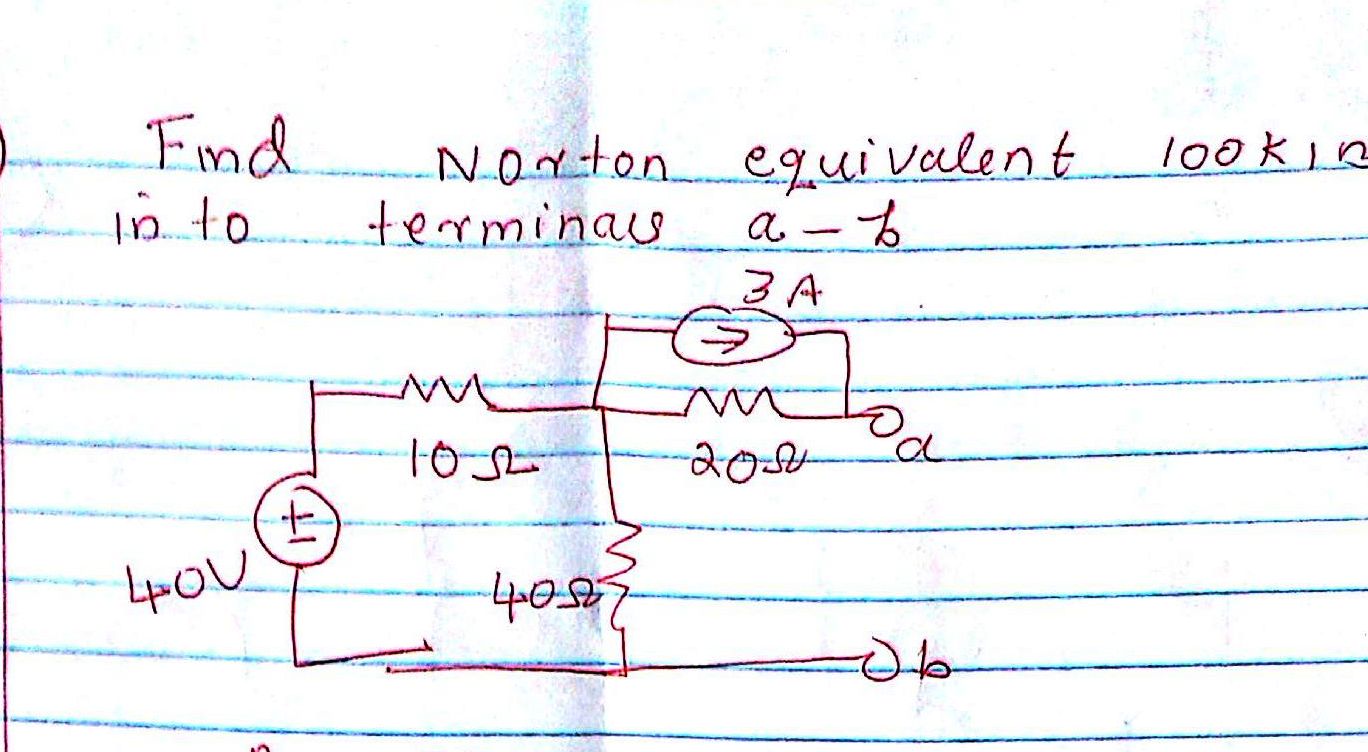 Find Norton equivalent
in to terminals a - b
3A
10Ω 20Ω a
±
40V 40Ω
b